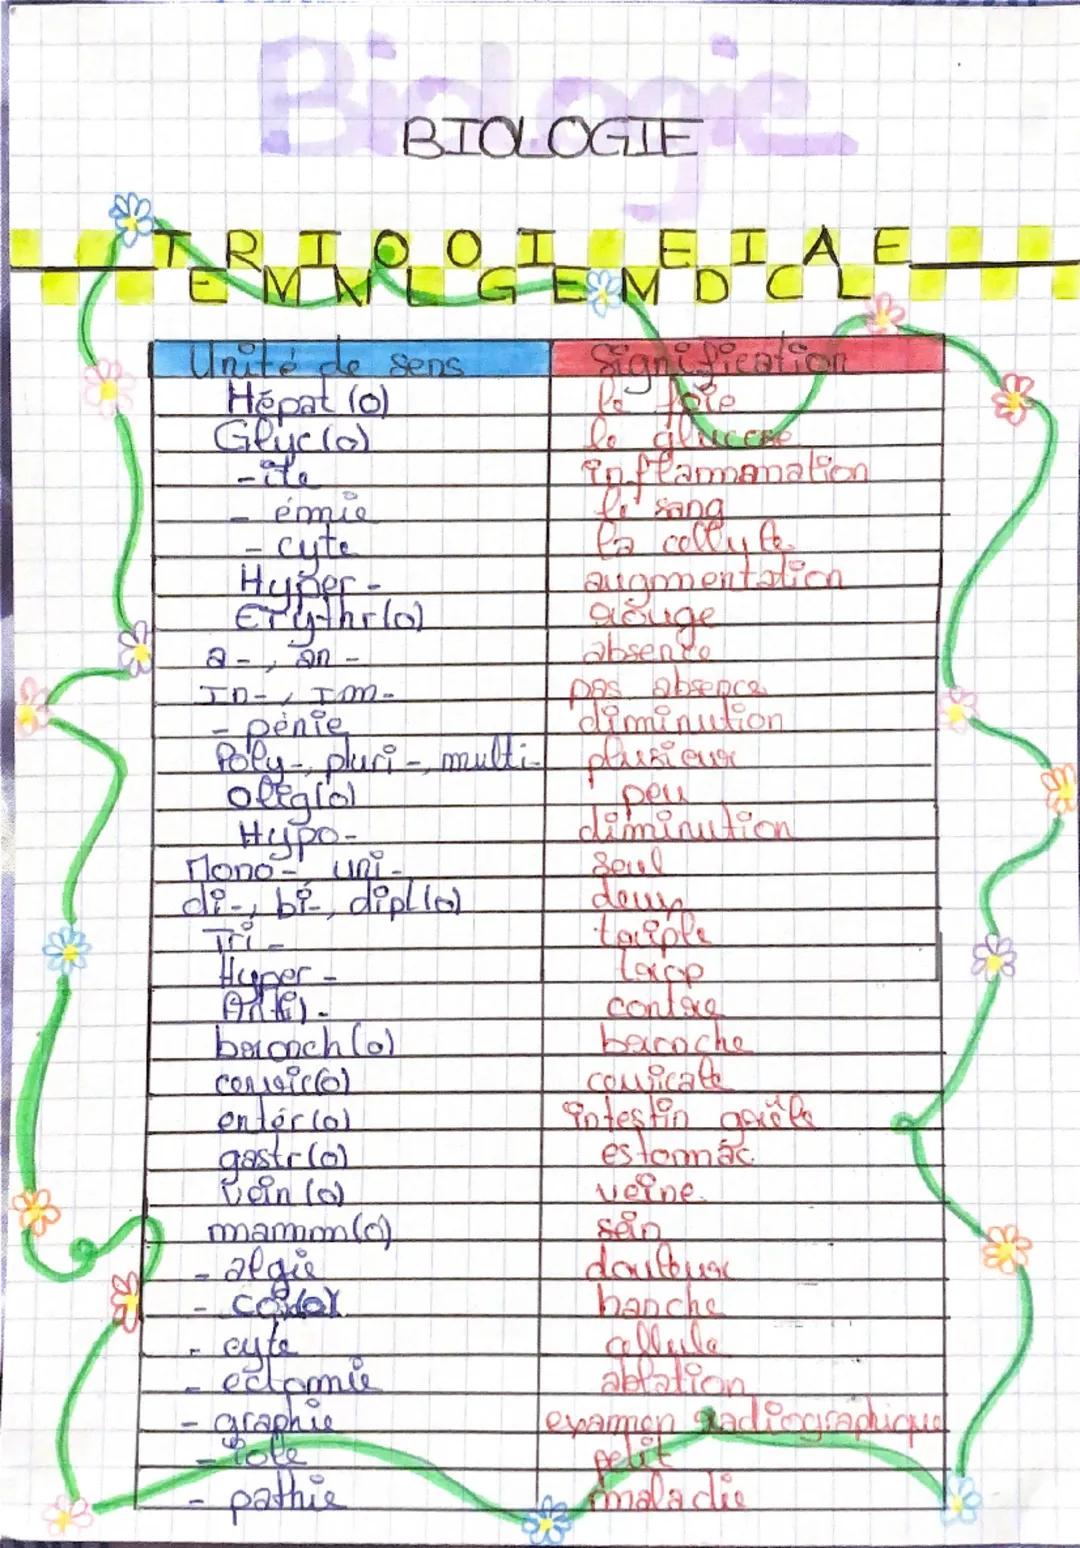 Biologie
BIOLOGIE
TERMINOLOGIE MEDICALE
Unité de sens Signification
Hépat (o) le foie
Glyc(o) le glucose
-ite inflammanation
- émie le sang
- cyte la cellule
Hyper - augmentation
Erythr(o) rouge
a-, an - absence
In-, Im- pas absence
- pénie diminution
Poly-, pluri-, multi- plusieur
Olig(o) peu
Hypo- diminution
Mono-, uni- seul
di-, bi-, dipl(o) deux
Tri - triple
Hyper - trop
Ant(i) - contre
bronch(o) bronche
cervic(o)
entér(o) intestin grêle
gastr(o) estomac
vein (o) veine
mamm(o) sein
- algie douleur
- hanche
- cyte cellule
- ectomie ablation
- graphie examen radiographique
- iole petit
- pathie maladie